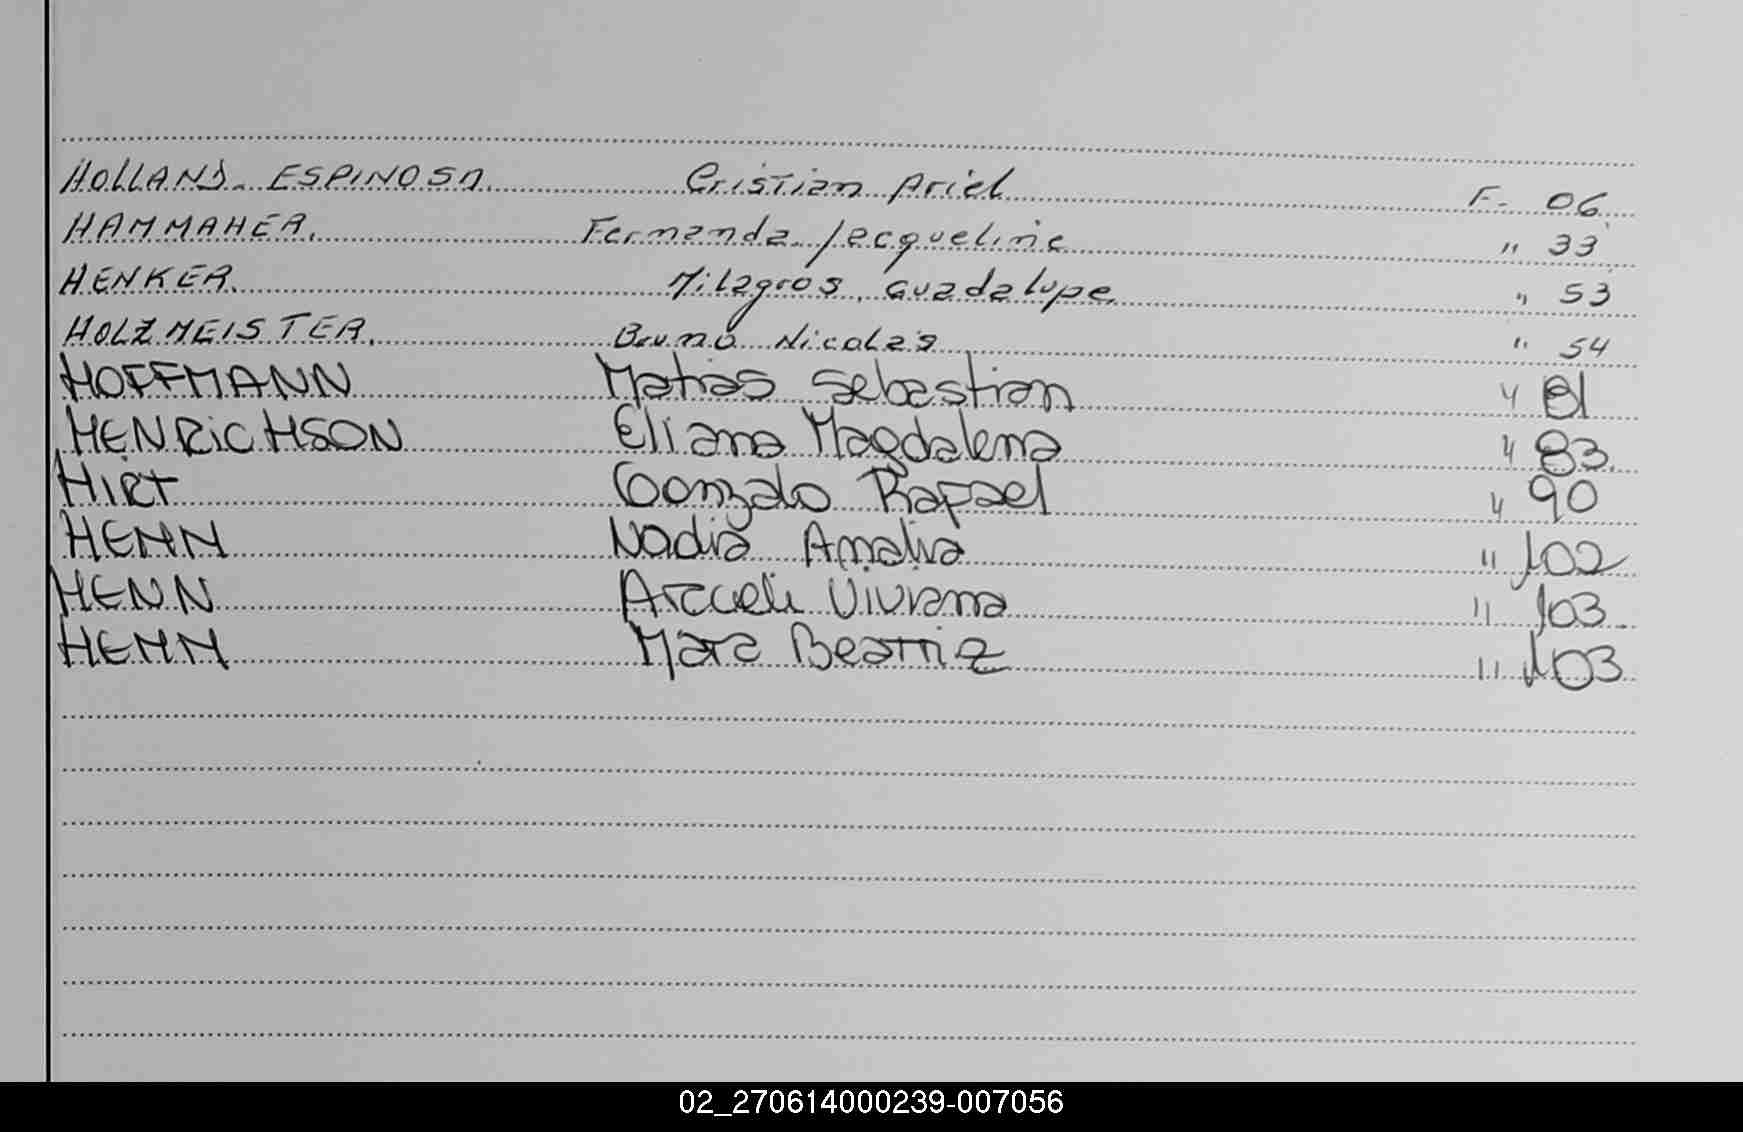 HOLLAND. ESPINOSA. Cristian Ariel F- 06
HAMMAHER. Fernanda Jacqueline " 33
HENKER. Milagros Guadalupe " 53
HOLZMEISTER. Bruno Nicolás " 54
HOFFMANN Matias Sebastian " 81
HENRiCHSON Eliana Magdalena " 83
HIRT Gonzalo Rafael " 90
HENN Nadia Amalia " 102
HENN Araceli Viviana " 103
HENN Mara Beatriz " 103
02_270614000239-007056